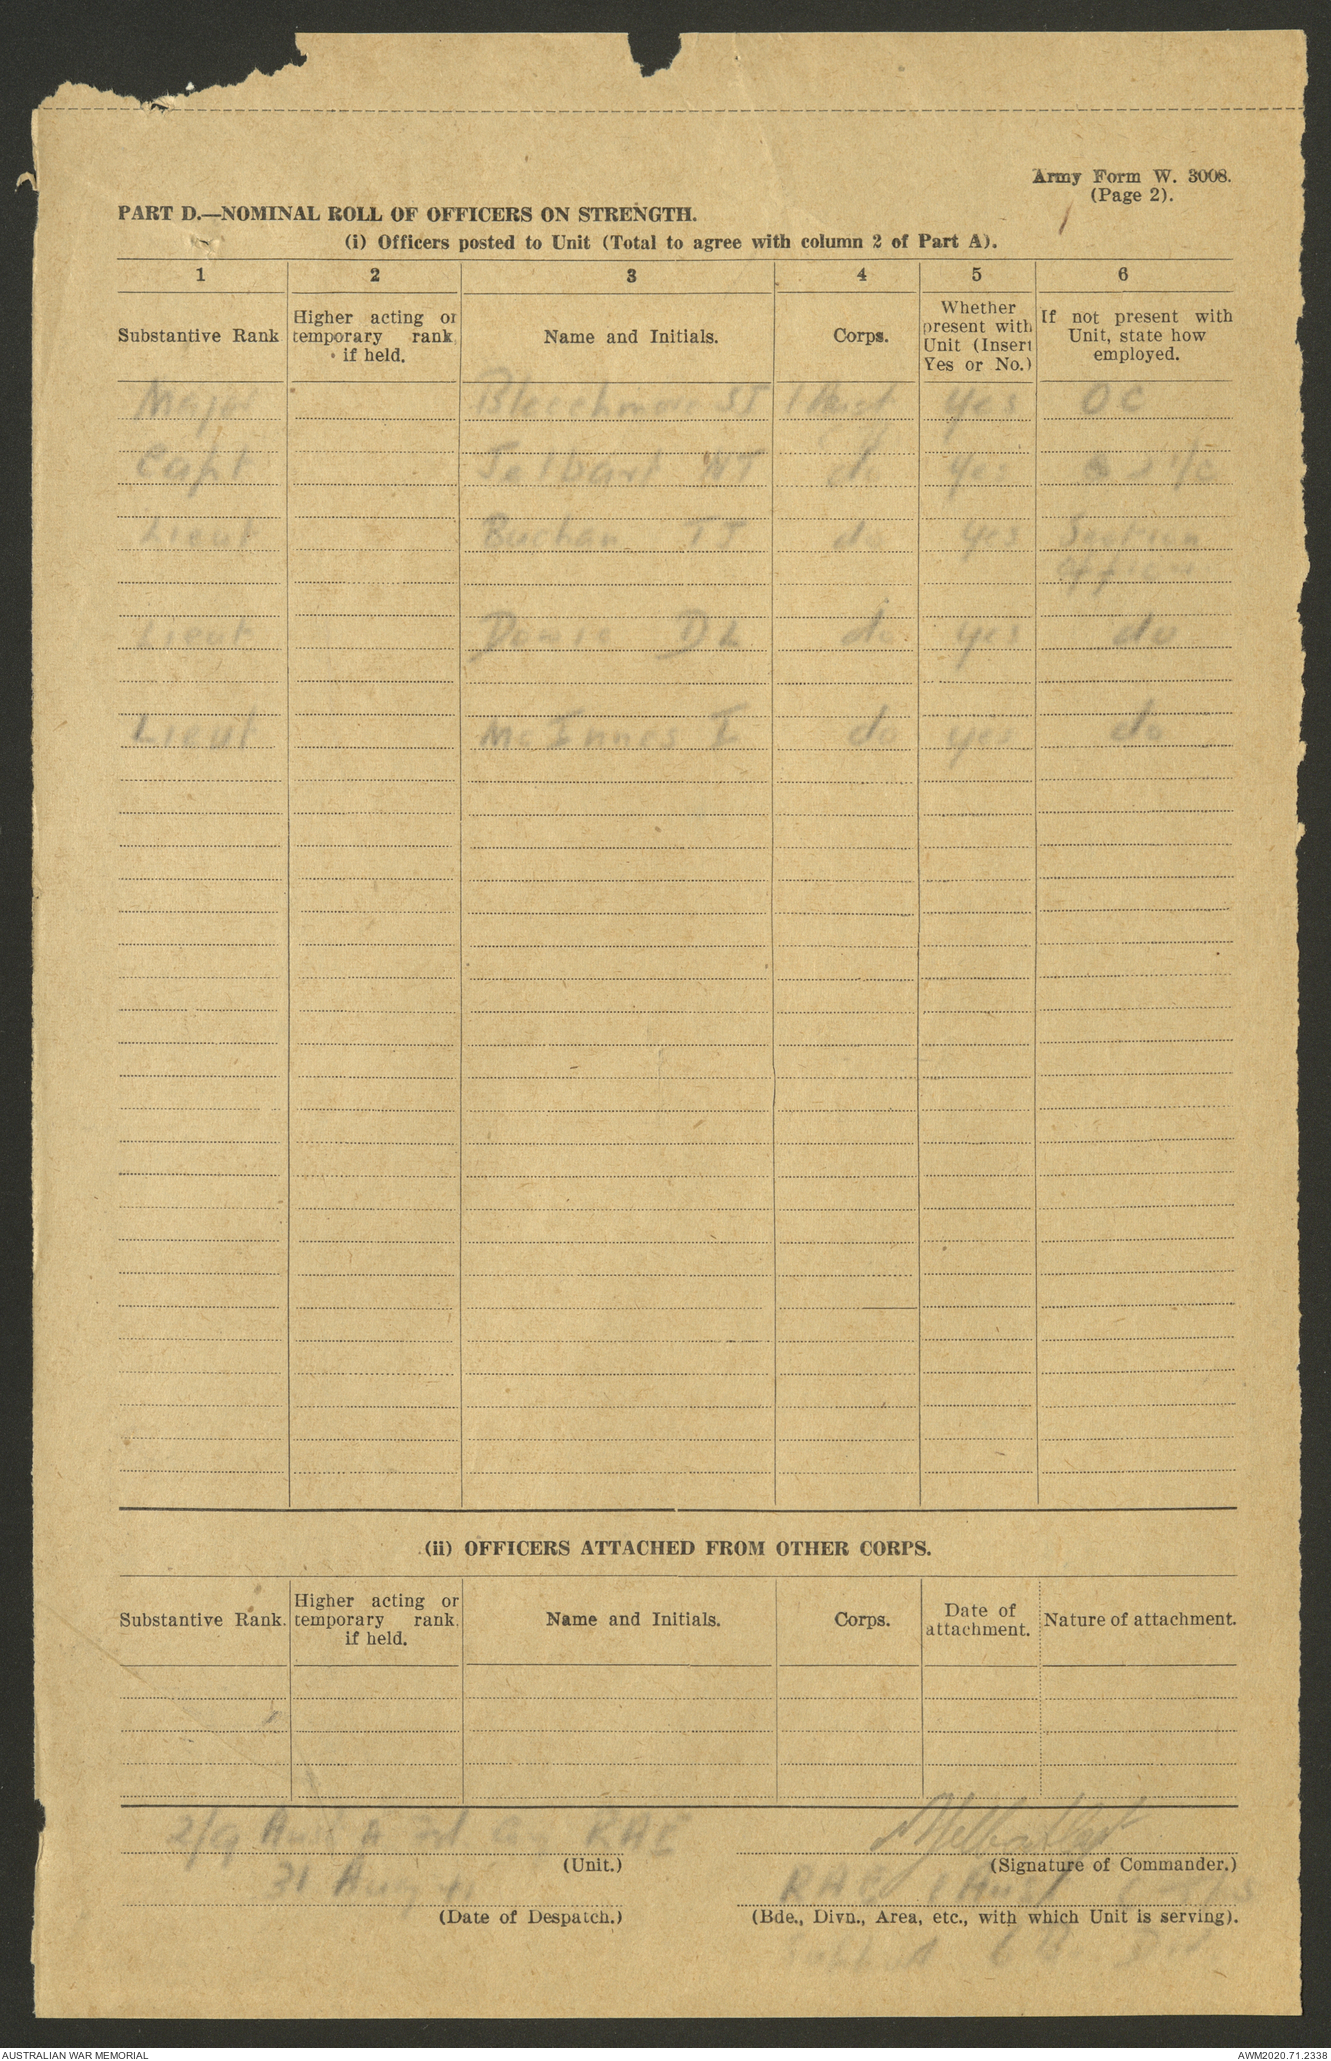 Army Form W. 3008.
(Page 2).
PART D.—NOMINAL ROLL OF OFFICERS ON STRENGTH.
(i) Officers posted to Unit (Total to agree with column 2 of Part A).
1 2 3 4 5 6
Substantive Rank Higher acting or temporary rank, if held. Name and Initials. Corps. Whether present with Unit (Insert Yes or No.) If not present with Unit, state how employed.
Major SJ yes OC
Capt Jelbart NT do yes
Lieut Buchan TJ do yes Section
Officer
Lieut DL do yes do
Lieut McInnes I do yes do
(ii) OFFICERS ATTACHED FROM OTHER CORPS.
Substantive Rank. Higher acting or temporary rank, if held. Name and Initials. Corps. Date of attachment. Nature of attachment.
2/9 Aust RAE
(Unit.) (Signature of Commander.)
31 Aug 41 RAE 1 Aust Corps
(Date of Despatch.) (Bde., Divn., Area, etc., with which Unit is serving).
AUSTRALIAN WAR MEMORIAL AWM2020.71.2338